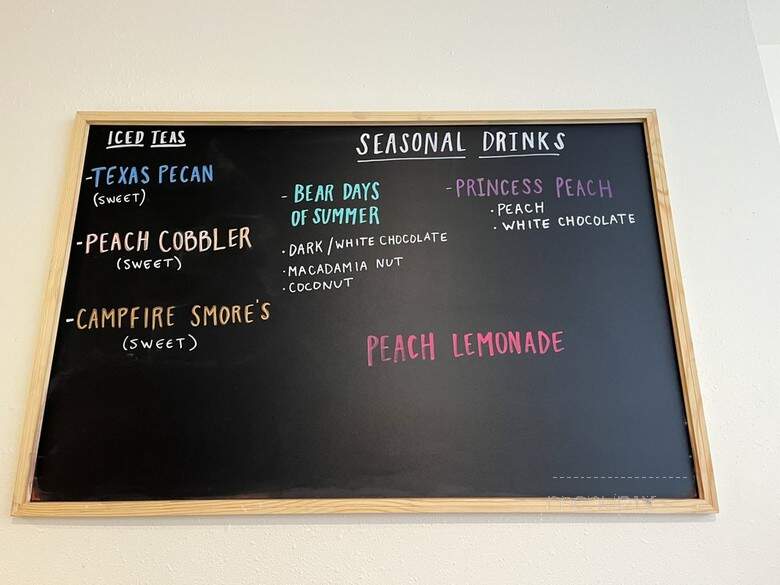 ICED TEAS
-TEXAS PECAN
(SWEET)
-PEACH COBBLER
(SWEET)
-CAMPFIRE SMORE'S
(SWEET)
SEASONAL DRINKS
- BEAR DAYS
OF SUMMER
· DARK/WHITE CHOCOLATE
· MACADAMIA NUT
· COCONUT
- PRINCESS PEACH
· PEACH
· WHITE CHOCOLATE
PEACH LEMONADE